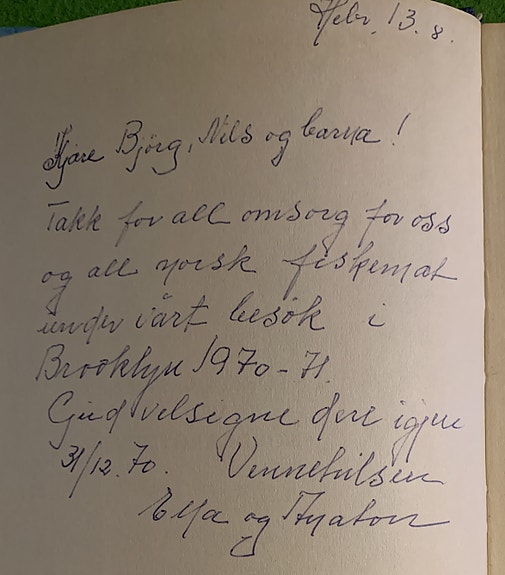 Hebr. 13.8.
Kjære Björg, Nils og barna!
Takk for all omsorg for oss
og all norsk fiskemat
under vårt besök i
Brooklyn 1970-71.
Gud velsigne dere igjen
31/12.70. Vennehilsen
Ella og Anaton